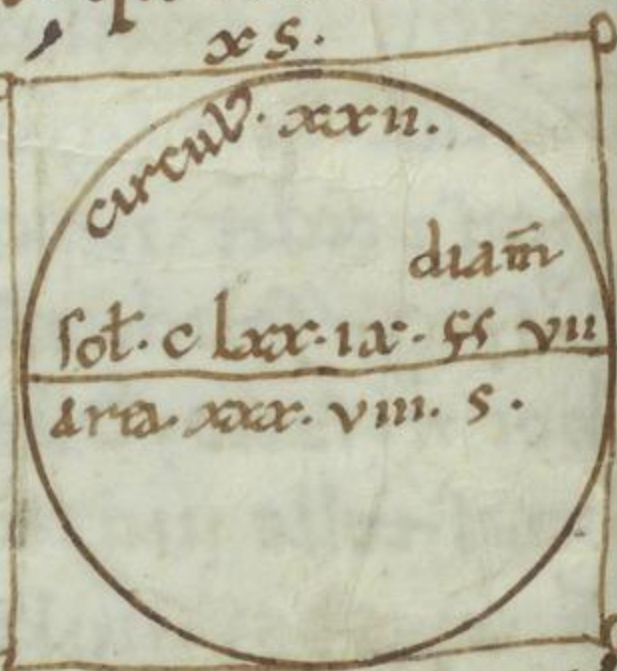 x s.
circul᷒. xxii.
diam̄
sol̄. c lxx. ix. ss vii
area. xxx. viii. s.